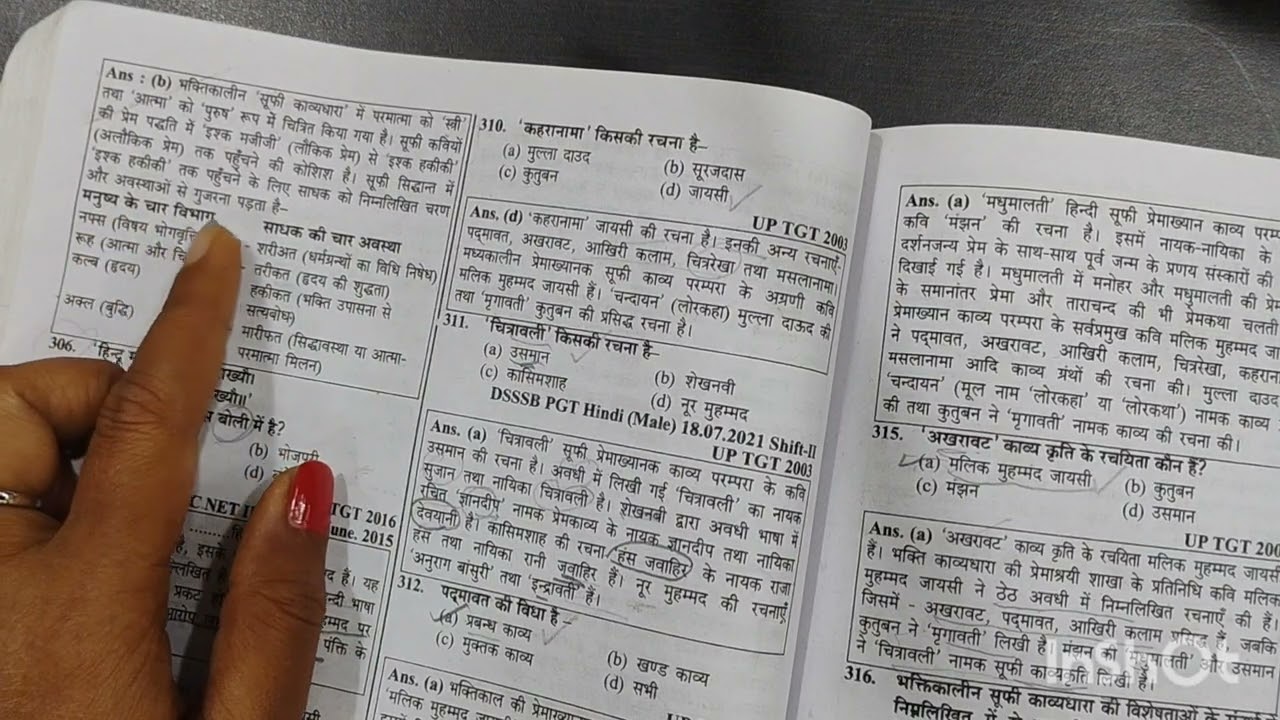 Ans : (b) भक्तिकालीन 'सूफी काव्यधारा' में परमात्मा को 'स्त्री'
तथा 'आत्मा' को 'पुरुष' रूप में चित्रित किया गया है। सूफी कवियों
की प्रेम पद्धति में 'इश्क मजीजी' (लौकिक प्रेम) से 'इश्क हकीकी'
(अलौकिक प्रेम) तक पहुँचने की कोशिश है। सूफी सिद्धान्त में
'इश्क हकीकी' तक पहुँचने के लिए साधक को निम्नलिखित चरण
और अवस्थाओं से गुजरना पड़ता है–
मनुष्य के चार विभाग साधक की चार अवस्था
नफ्स (विषय - शरीअत (धर्मग्रन्थों का विधि निषेध)
रूह (आत्मा और - तरीकत (हृदय की शुद्धता)
कल्ब (हृदय) हकीकत (भक्ति उपासना से
सत्यबोध)
अक्ल (बुद्धि) मारीफत (सिद्धावस्था या आत्मा-
परमात्मा मिलन)
306. 'हिन्दू
बोली में है?
(b) भोजपुरी
(d)
TGT 2016
June. 2015
पंक्ति के
310. 'कहरानामा' किसकी रचना है–
(a) मुल्ला दाउद (b) सूरजदास
(c) कुतुबन (d) जायसी
UP TGT 2003
Ans. (d) 'कहरानामा' जायसी की रचना है। इनकी अन्य रचनाएँ-
पद्मावत, अखरावट, आखिरी कलाम, चित्ररेखा तथा मसलानामा।
मध्यकालीन प्रेमाख्यानक सूफी काव्य परम्परा के अग्रणी कवि
मलिक मुहम्मद जायसी हैं। 'चन्दायन' (लोरकहा) मुल्ला दाऊद की
तथा 'मृगावती' कुतुबन की प्रसिद्ध रचना है।
311. 'चित्रावली' किसकी रचना है–
(a) उसमान (b) शेखनवी
(c) कासिमशाह (d) नूर मुहम्मद
DSSSB PGT Hindi (Male) 18.07.2021 Shift-II
UP TGT 2003
Ans. (a) 'चित्रावली' सूफी प्रेमाख्यानक काव्य परम्परा के कवि
उसमान की रचना है। अवधी में लिखी गई 'चित्रावली' का नायक
सुजान तथा नायिका चित्रावली है। शेखनबी द्वारा अवधी भाषा में
रचित 'ज्ञानदीप' नामक प्रेमकाव्य के नायक ज्ञानदीप तथा नायिका
देवयानी है। कासिमशाह की रचना हंस जवाहिर के नायक राजा
हंस तथा नायिका रानी जवाहिर हैं। नूर मुहम्मद की रचनाएँ
'अनुराग बांसुरी' तथा 'इन्द्रावती' हैं।
312. पद्मावत की विधा है –
(a) प्रबन्ध काव्य (b) खण्ड काव्य
(c) मुक्तक काव्य (d) सभी
Ans. (a) भक्तिकाल की
'मलिक मुहम्मद जायसी
Ans. (a) 'मधुमालती' हिन्दी सूफी प्रेमाख्यान काव्य
कवि 'मंझन' की रचना है। इसमें नायक-नायिका के
दर्शनजन्य प्रेम के साथ-साथ पूर्व जन्म के प्रणय संस्कारों की
दिखाई गई है। मधुमालती में मनोहर और मधुमालती की
के समानांतर प्रेमा और ताराचन्द की भी प्रेमकथा चलती
प्रेमाख्यान काव्य परम्परा के सर्वप्रमुख कवि मलिक मुहम्मद
ने पद्मावत, अखरावट, आखिरी कलाम, चित्ररेखा,
मसलानामा आदि काव्य ग्रंथों की रचना की। मुल्ला दाउद
'चन्दायन' (मूल नाम 'लोरकहा' या 'लोरकथा') नामक काव्य
की तथा कुतुबन ने 'मृगावती' नामक काव्य की रचना की।
315. 'अखरावट' काव्य कृति के रचयिता कौन हैं?
(a) मलिक मुहम्मद जायसी (b) कुतुबन
(c) मंझन (d) उसमान
UP TGT
Ans. (a) 'अखरावट' काव्य कृति के रचयिता मलिक मुहम्मद जायसी
हैं। भक्ति काव्यधारा की प्रेमाश्रयी शाखा के प्रतिनिधि कवि मलिक
मुहम्मद जायसी ने ठेठ अवधी में निम्नलिखित रचनाएँ की हैं।
जिसमें - अखरावट, पद्मावत, आखिरी कलाम प्रसिद्ध हैं, जबकि
कुतुबन ने 'मृगावती' लिखी है। मंझन की 'मधुमालती' और उसमान
ने 'चित्रावली' नामक सूफी काव्यकृति लिखी है।
316. भक्तिकालीन सूफी काव्यधारा की विशेषताओं के
निम्नलिखित में
InShOt